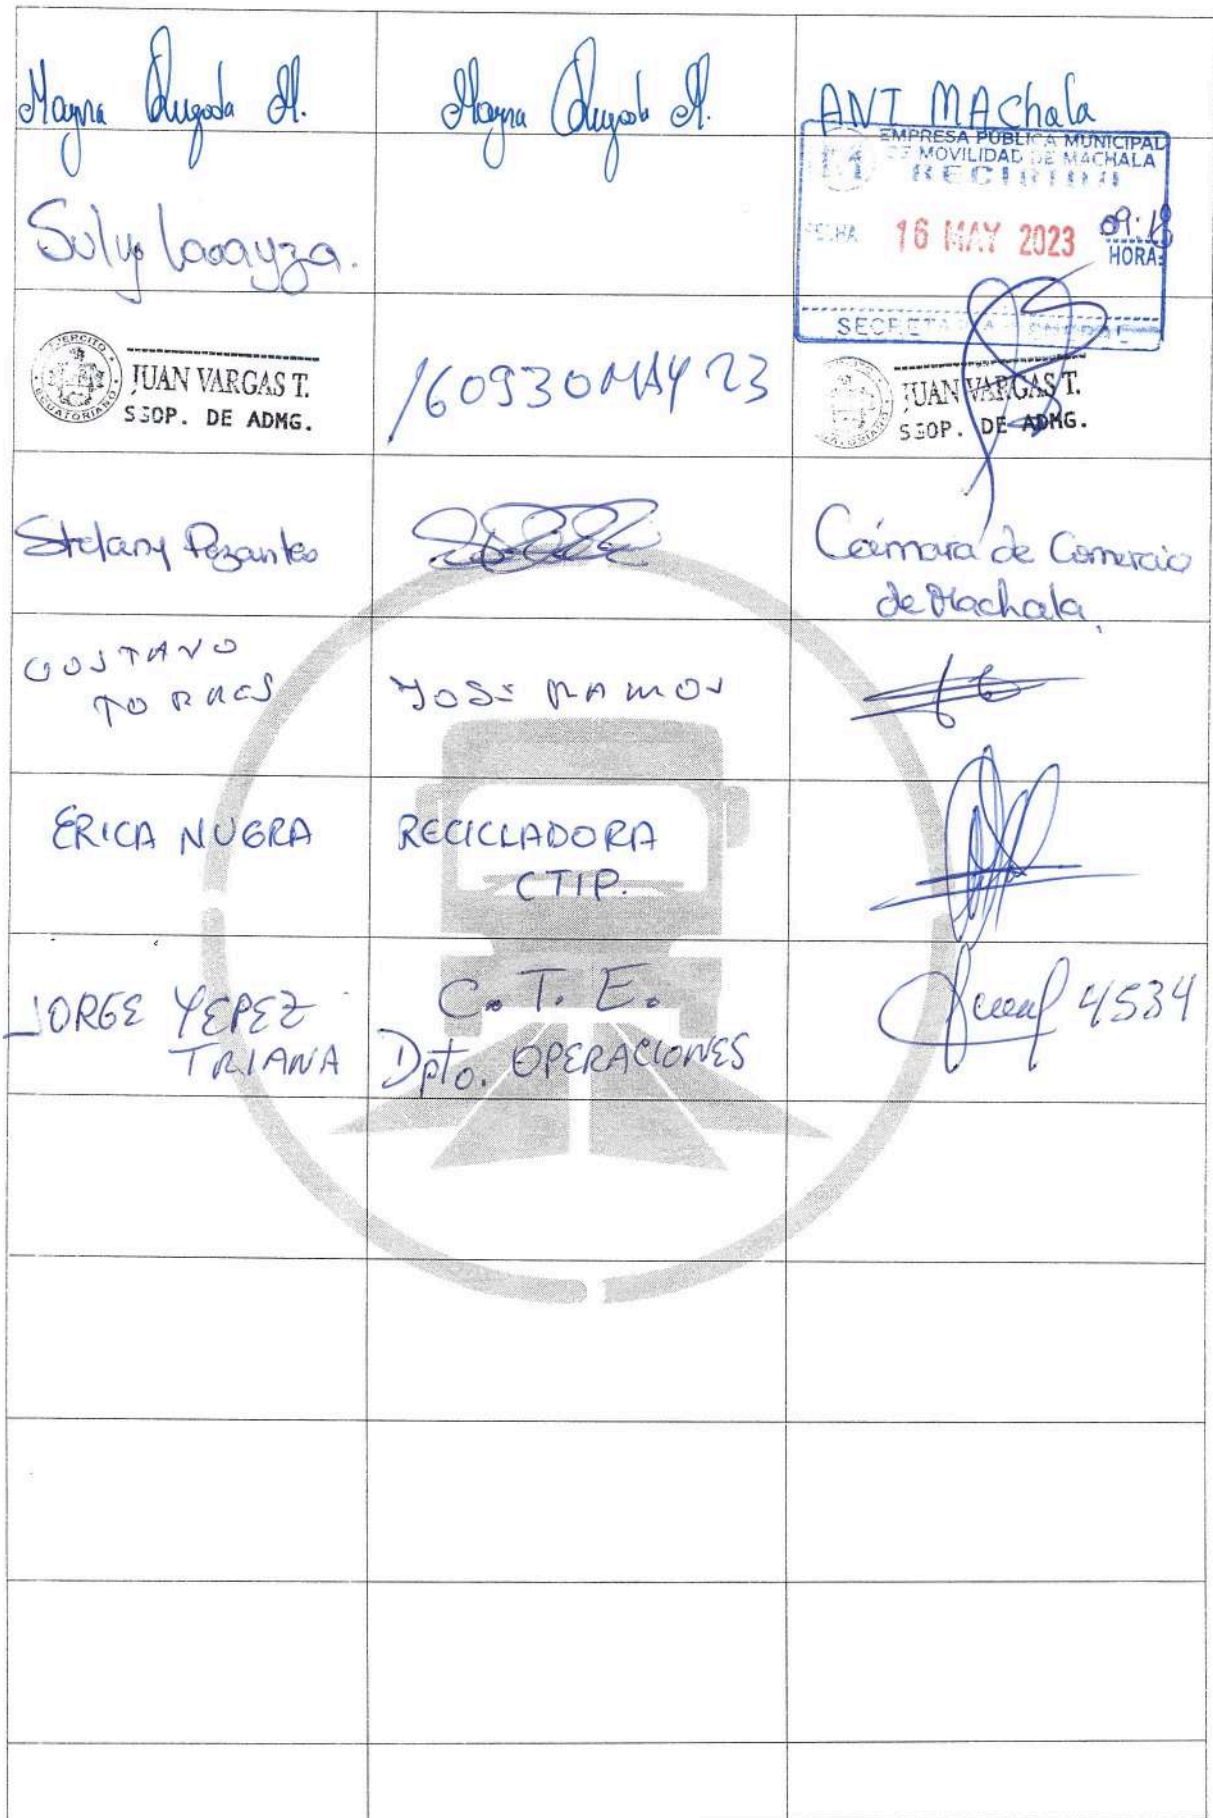 Mayra Quezada M.
Mayra Quezada M.
ANT MAChala
EMPRESA PÚBLICA MUNICIPAL
DE MOVILIDAD DE MACHALA
RECIBIDO
FECHA 16 MAY 2023 09:18
HORA:
SECRETARIA GENERAL
Sulys Loayza.
EJERCITO ECUATORIANO
JUAN VARGAS T.
SGOP. DE ADMG.
160930MAY 23
JUAN VARGAS T.
SGOP. DE ADMG.
Stefany Pezantes
Cámara de Comercio
de Machala,
GUSTAVO
TORRES
JOSE RAMOS
ERICA NUGRA
RECICLADORA
CTIP.
JORGE YEPEZ
TRIANA
C. T. E.
Dpto. OPERACIONES
4534